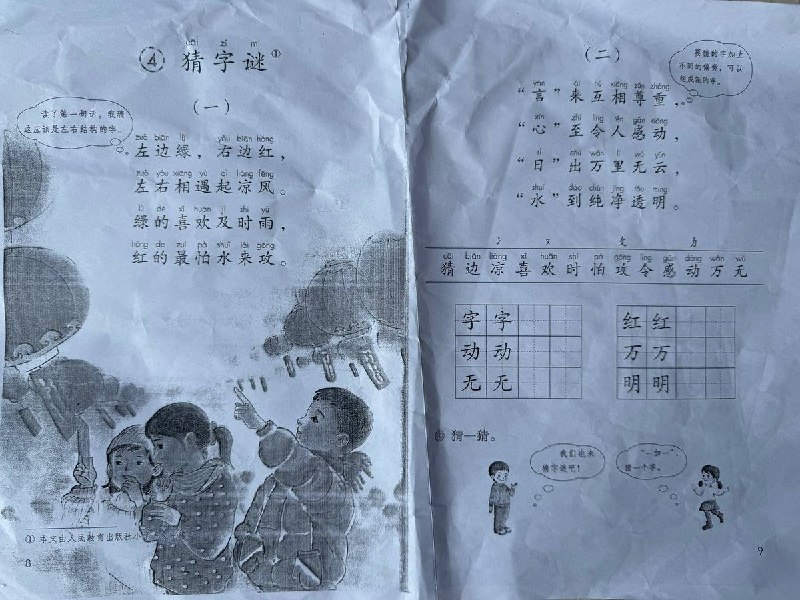 ④ 猜字谜①
(一)
读了第一句话，我猜
这应该是左右结构的字。
zuǒ biān lǜ yòu biān hóng
左边绿，右边红，
zuǒ yòu xiāng yù qǐ liáng fēng
左右相遇起凉风。
lǜ de xǐ huān jí shí yǔ
绿的喜欢及时雨，
hóng de zuì pà shuǐ lái gōng
红的最怕水来攻。
① 本文由人民教育出版社小
8
(二)
字加上
不同的偏旁，可以
yán lái hù xiāng zūn zhòng
“言”来互相尊重，
xīn zhì lìng rén gǎn dòng
“心”至令人感动，
rì chū wàn lǐ wú yún
“日”出万里无云，
shuǐ dào chún jìng tòu míng
“水”到纯净透明。
cāi biān liáng xǐ huān shí pà gōng lìng gǎn dòng wàn wú
猜边凉喜欢时怕攻令感动万无
字字 红红
动动 万万
无无 明明
猜一猜。
我们也来
猜字谜吧！
“一加一”
猜一个字。
9